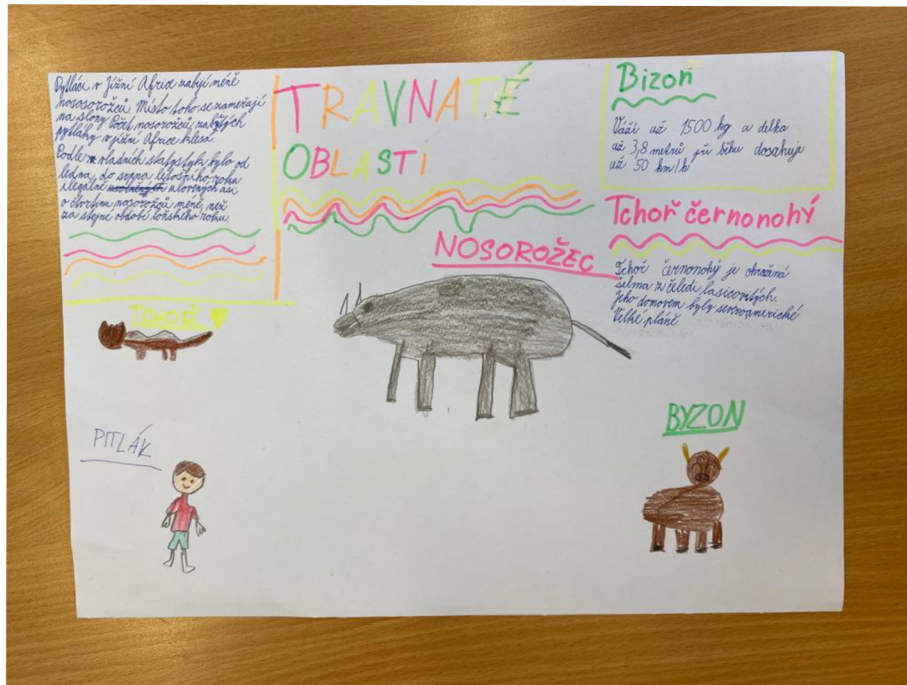 Pytláci v Jižní Africe zabíjí méně
nososorožců. Místo toho se zaměřají
na slony. Počet nosorožců zabitých
pytláky v jižní Africe klesá.
Podle vládních statystyk bylo od
ledna do srpna letošního roku
ilegálně ulovených asi
o čtvrtinu nosorožců méně, než
za stejné období loňského roku.
TRAVNATÉ
OBLASTI
Bizoň
Váží až 1500 kg a delka
až 3,8 metrů při běhu dosahuje
až 50 km/h
Tchoř černonohý
Tchoř černonohý je ohrožená
šelma z čeledi lasicovitých.
Jeho domovem byly severoamerické
Velké pláně.
NOSOROŽEC
TCHOŘ
PITLÁK
BYZON